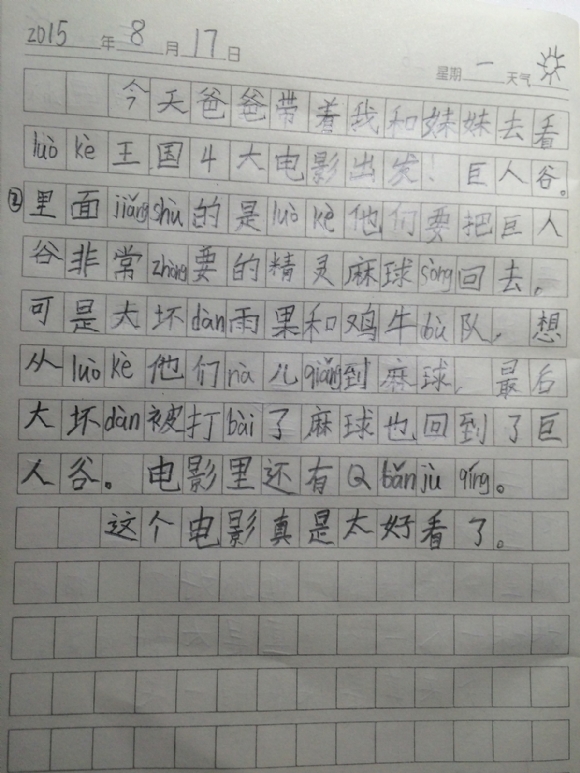 2015年8月17日
星期一天气
今天爸爸带着我和妹妹去看
luò kè王国4大电影出发！巨人谷。
②里面jiǎngshù的是luò kè他们要把巨人
谷非常zhòng要的精灵麻球sòng回去。
可是大坏dàn雨果和鸡牛bù队，想
从luò kè他们nà儿qiǎng到麻球，最后
大坏dàn被打bài了麻球也回到了巨
人谷。电影里还有Q bǎn jù qíng。
这个电影真是太好看了。